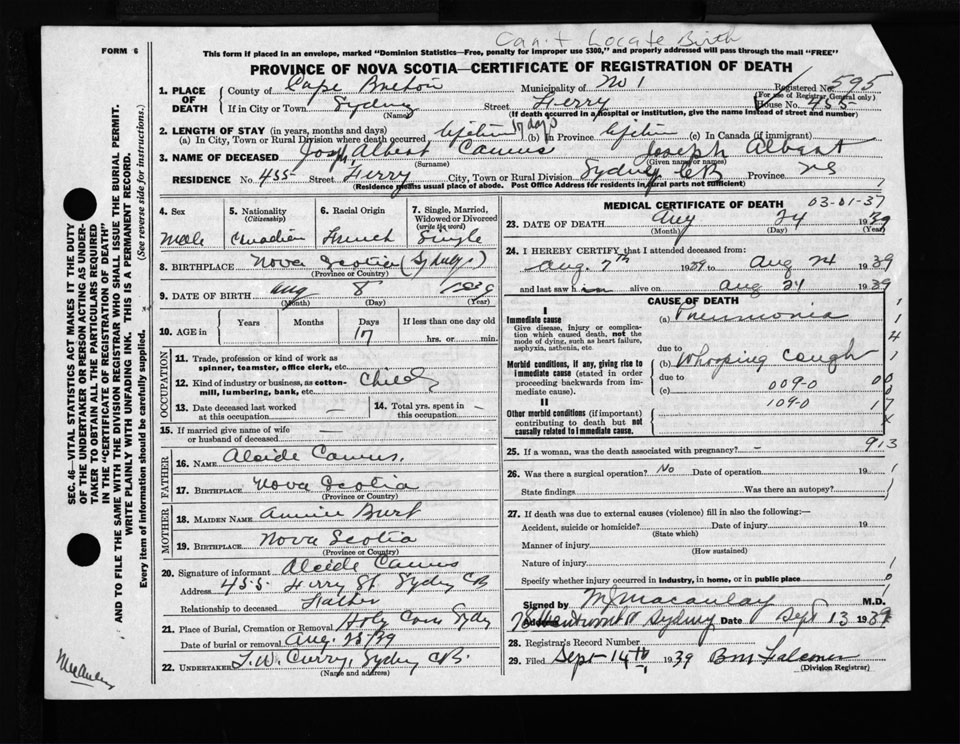 Can't Locate Birth
FORM 6
This form if placed in an envelope, marked "Dominion Statistics—Free, penalty for improper use $300," and properly addressed will pass through the mail "FREE"
PROVINCE OF NOVA SCOTIA—CERTIFICATE OF REGISTRATION OF DEATH
1. PLACE OF DEATH County of Cape Breton Municipality of No 1 Registered No. 595
(For use of Registrar General only)
If in City or Town Sydney Street Ferry House No. 455
(Name) (If death occurred in a hospital or institution, give the name instead of street and number)
2. LENGTH OF STAY (in years, months and days)
(a) In City, Town or Rural Division where death occurred Lifetime 17 days (b) in Province Lifetime (c) In Canada (if immigrant)
3. NAME OF DECEASED Joseph Albert Camus Joseph Albert
(Surname) (Given name or names)
RESIDENCE No. 455 Street Ferry City, Town or Rural Division Sydney CB Province NS
(Residence means usual place of abode. Post Office Address for residents in rural parts not sufficient)
4. Sex Male
5. Nationality (Citizenship) Canadian
6. Racial Origin French
7. Single, Married, Widowed or Divorced (write the word) Single
8. BIRTHPLACE Nova Scotia (Sydney)
(Province or Country)
9. DATE OF BIRTH Aug 8 1939
(Month) (Day) (Year)
10. AGE in Years Months Days 17 If less than one day old hrs. or min.
OCCUPATION
11. Trade, profession or kind of work as spinner, teamster, office clerk, etc.
12. Kind of industry or business, as cotton-mill, lumbering, bank, etc. Child
13. Date deceased last worked at this occupation —
14. Total yrs. spent in this occupation —
15. If married give name of wife or husband of deceased —
FATHER
16. NAME Alcide Camus.
17. BIRTHPLACE Nova Scotia
(Province or Country)
MOTHER
18. MAIDEN NAME Annie Burt
19. BIRTHPLACE Nova Scotia
(Province or Country)
20. Signature of informant Alcide Camus
Address 455 Ferry St. Sydney CB
Relationship to deceased Father
21. Place of Burial, Cremation or Removal Holy Cross Sydney
Date of burial or removal Aug. 25/39
22. UNDERTAKER T. W. Curry, Sydney CB.
(Name and address)
MEDICAL CERTIFICATE OF DEATH 03-01-37
23. DATE OF DEATH Aug 24 1939
(Month) (Day) (Year)
24. I HEREBY CERTIFY that I attended deceased from:
Aug. 7th 1939 to Aug 24 1939
and last saw him alive on Aug 24 1939
CAUSE OF DEATH
I
Immediate cause (a) Pneumonia
Give disease, injury or complication which caused death, not the mode of dying, such as heart failure, asphyxia, asthenia, etc.
due to
Morbid conditions, if any, giving rise to immediate cause (stated in order proceeding backwards from immediate cause). (b) Whooping Cough
due to 009-0
(c)
109-0
II
Other morbid conditions (if important) contributing to death but not causally related to immediate cause.
25. If a woman, was the death associated with pregnancy? — 913
26. Was there a surgical operation? No Date of operation 19
State findings Was there an autopsy?
27. If death was due to external causes (violence) fill in also the following:—
Accident, suicide or homicide? Date of injury 19
(State which)
Manner of injury
(How sustained)
Nature of injury
Specify whether injury occurred in industry, in home, or in public place
Signed by M Macaulay M.D.
Sydney Date Sept 13 1939
28. Registrar's Record Number
29. Filed Sept 14th 1939
(Division Registrar)
SEC. 46—VITAL STATISTICS ACT MAKES IT THE DUTY
OF THE UNDERTAKER OR PERSON ACTING AS UNDER-
TAKER TO OBTAIN ALL THE PARTICULARS REQUIRED
IN THE "CERTIFICATE OF REGISTRATION OF DEATH"
AND TO FILE THE SAME WITH THE DIVISION REGISTRAR WHO SHALL ISSUE THE BURIAL PERMIT.
WRITE PLAINLY WITH UNFADING INK. THIS IS A PERMANENT RECORD.
Every item of information should be carefully supplied. (See reverse side for instructions.)